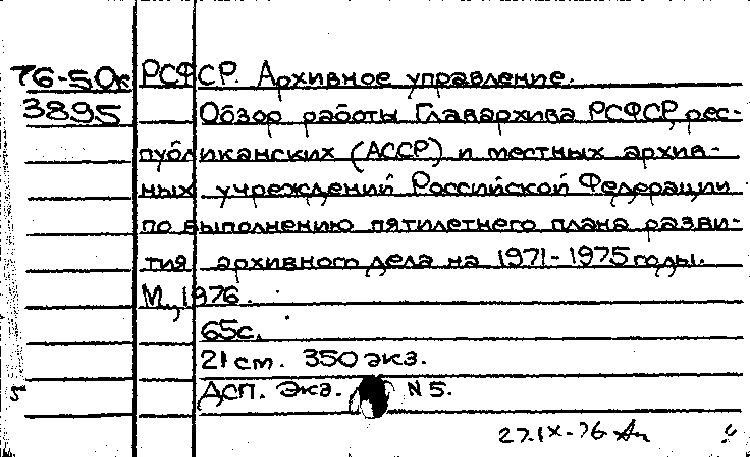 76-5.0к РСФСР. Архивное управление.
3895 Обзор работы Главархива РСФСР, рес-
публиканских (АССР) и местных архив-
ных учреждений Российской Федерации
по выполнению пятилетнего плана разви-
тия архивного дела на 1971-1975 годы.
М., 1976.
65с.
21 см. 350 экз.
ДСП. Экз. N 5.
27.IX-76